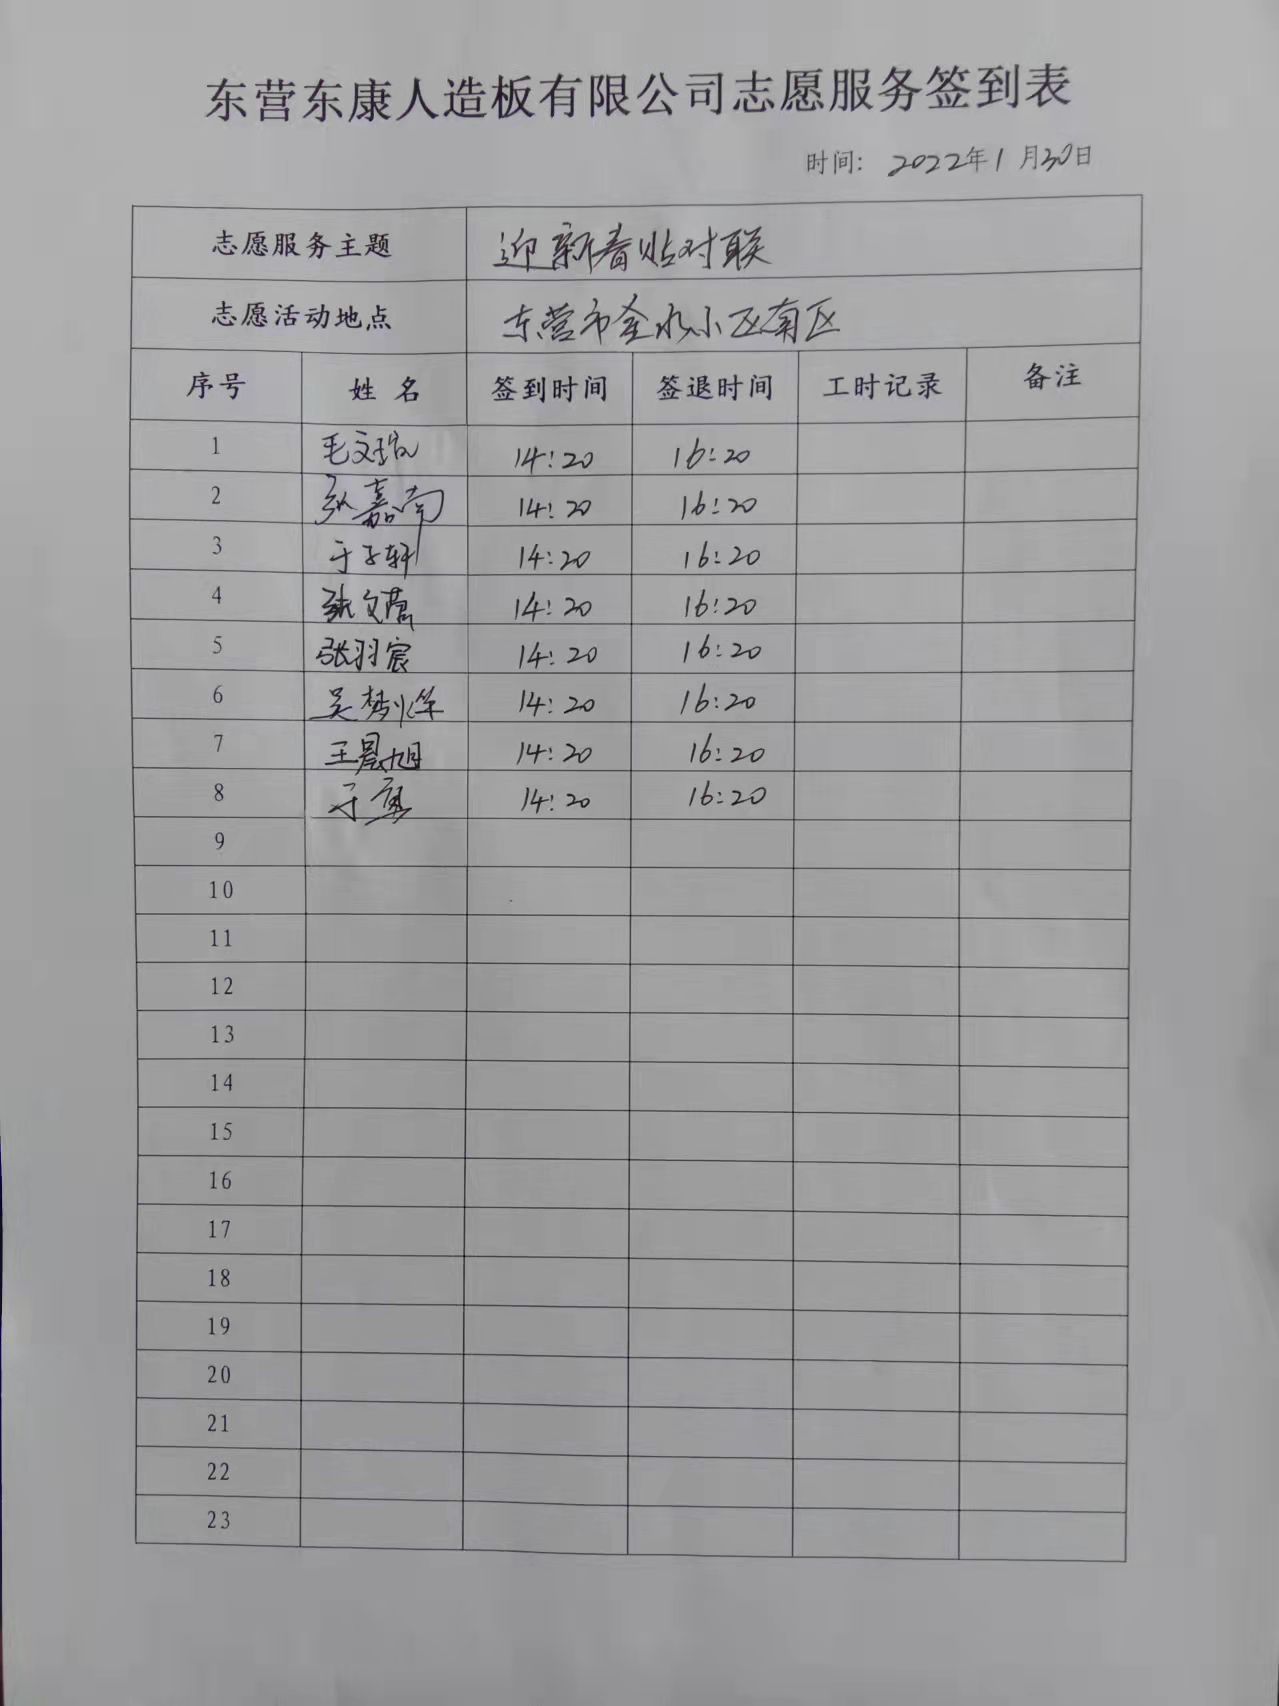 东营东康人造板有限公司志愿服务签到表
时间: 2022年1月30日
志愿服务主题 迎新春贴对联
志愿活动地点 东营市金水小区南区
序号 姓名 签到时间 签退时间 工时记录 备注
1 毛文 14:20 16:20
2 张嘉 14:20 16:20
3 于子轩 14:20 16:20
4 张文 14:20 16:20
5 张羽宸 14:20 16:20
6 吴梦 14:20 16:20
7 王晨旭 14:20 16:20
8 于 14:20 16:20
9
10
11
12
13
14
15
16
17
18
19
20
21
22
23